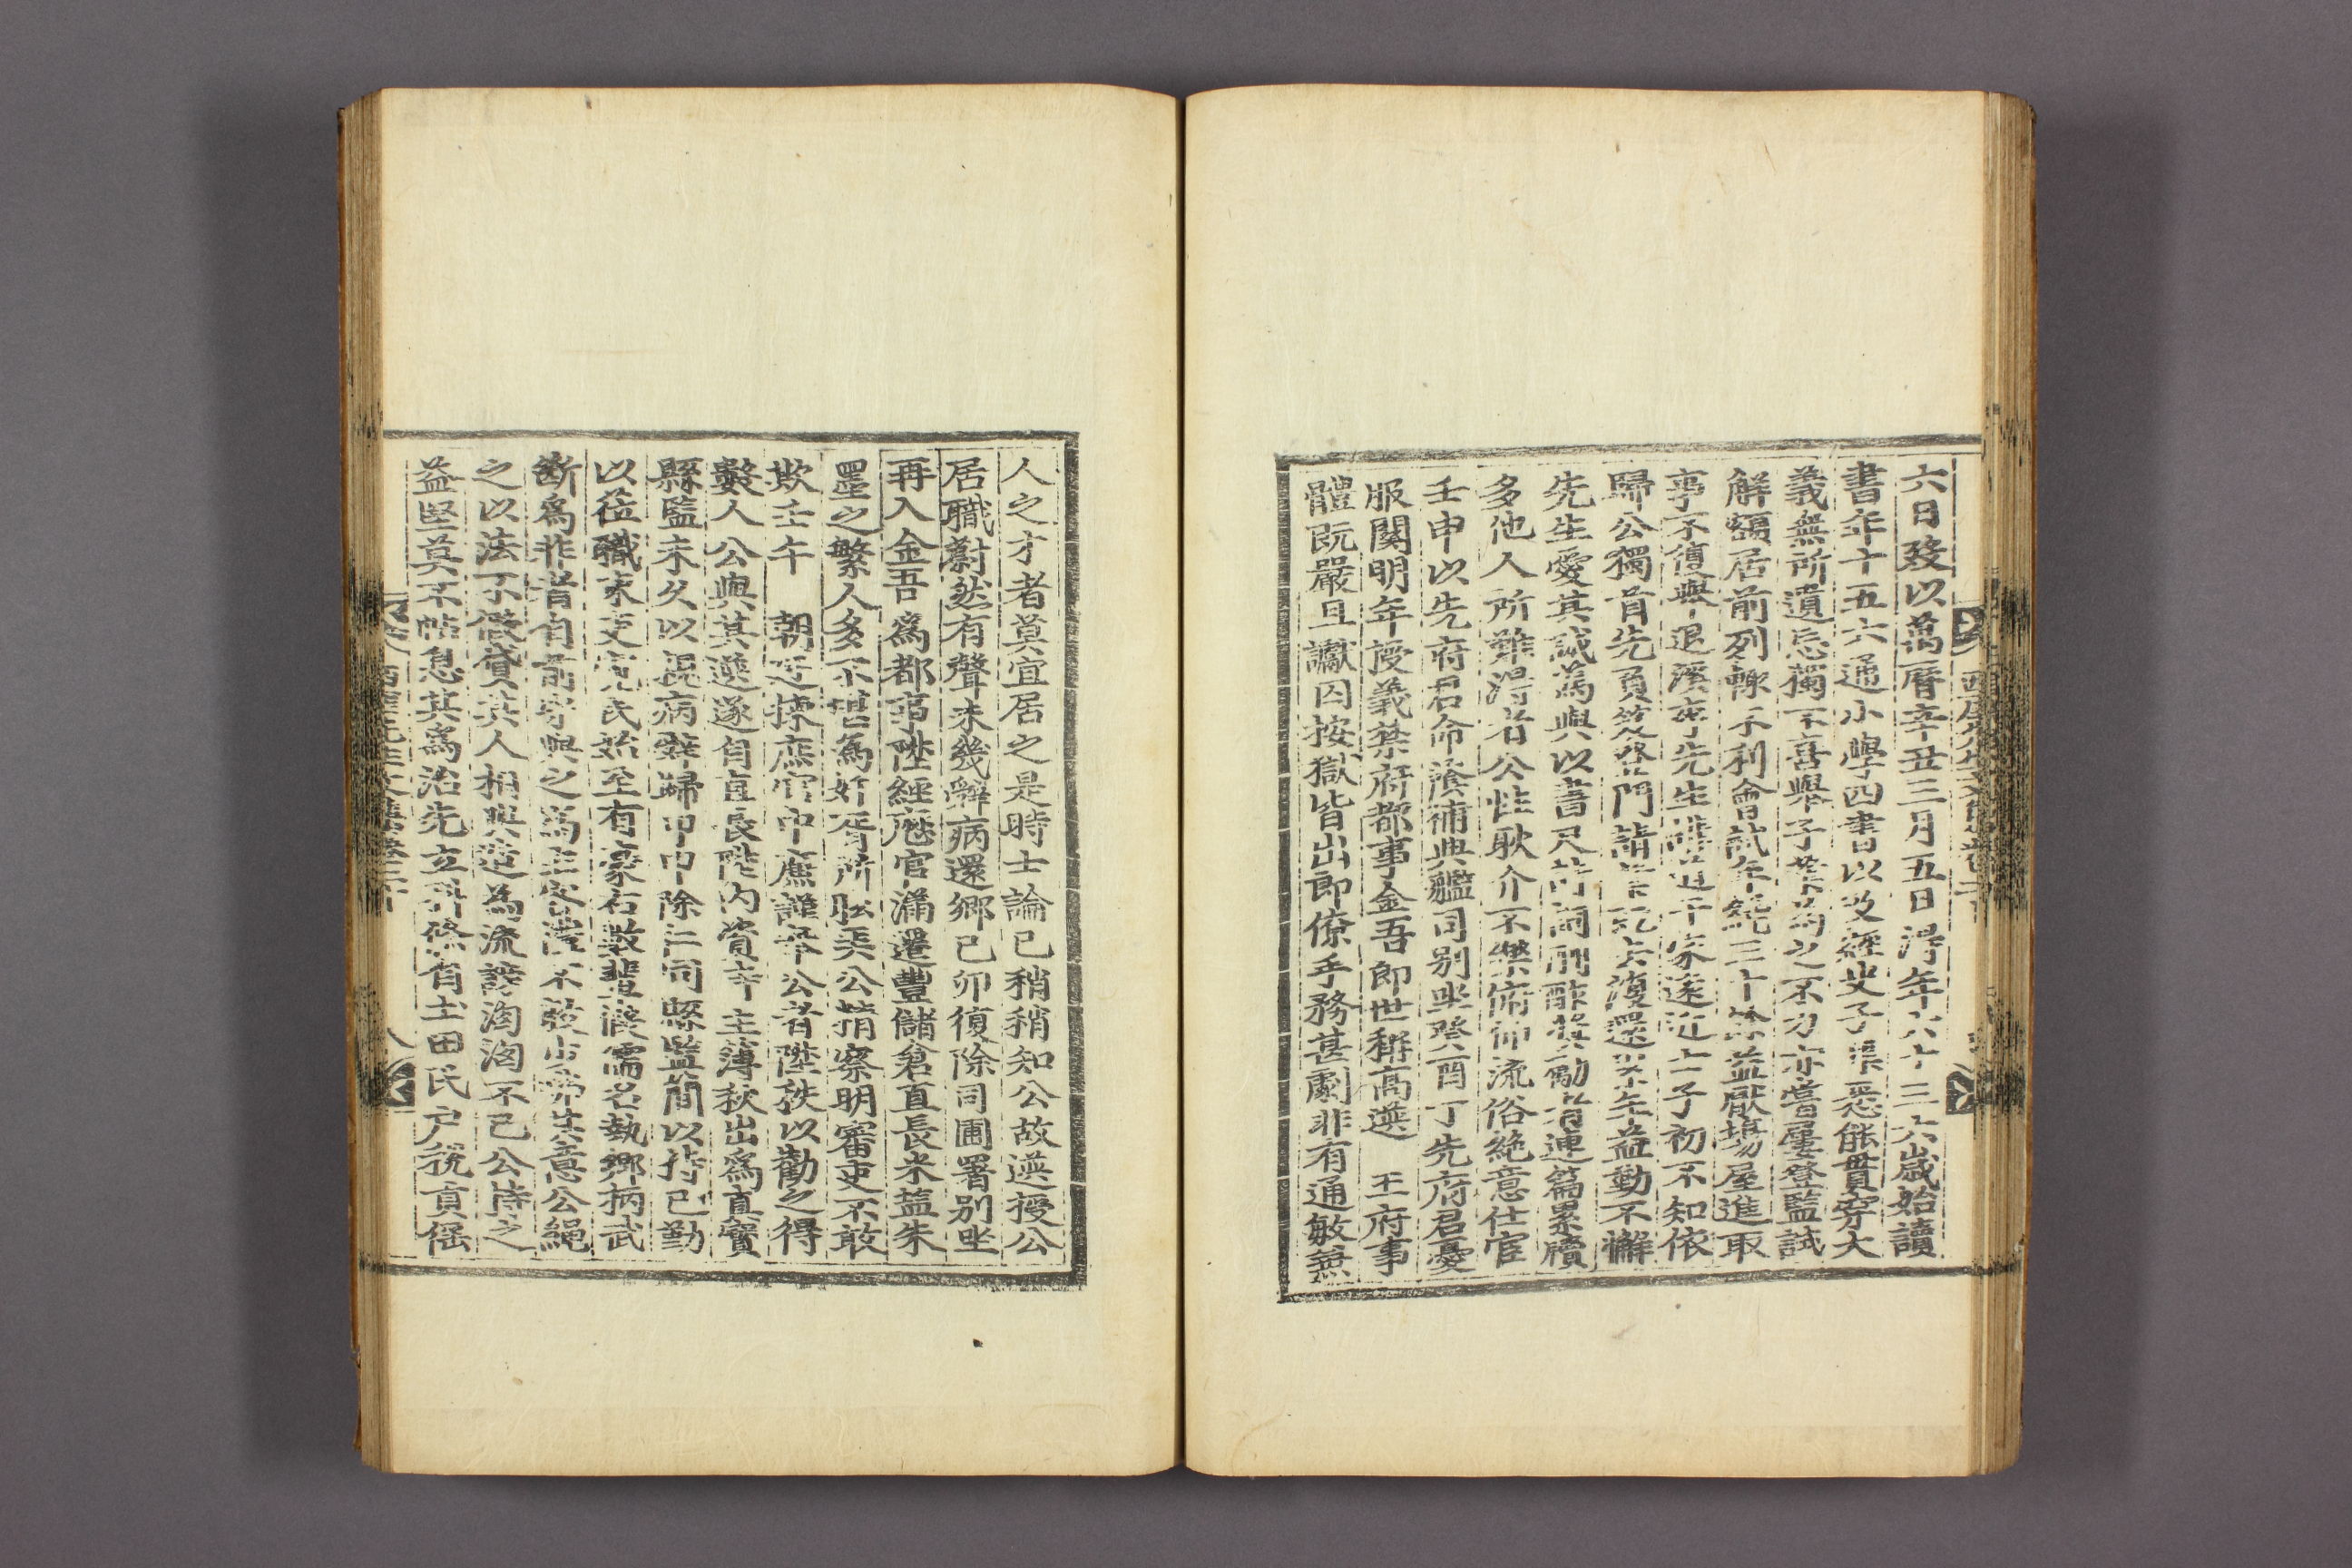 六日發以萬曆辛丑三月五日得年六十三六歲始讀
書年十五六通小學四書以及經史子集悉能貫穿大
義無所遺忘獨不喜擧子業爲之不力亦嘗屢登監試
解額居前列輒不利會試年纔三十餘益厭場屋進取
事不復與退溪李先生講道于家遠近士子初不知依
歸公獨首先負笈登門請業旣去復還累年益勤不懈
先生愛其誠篤與以書尺詩詞酬酢奬勵者連篇累牘
多他人所難得者公性耿介不樂俯仰流俗絶意仕宦
壬申以先府君命蔭補典艦司別坐癸酉丁先府君憂
服闋明年授義禁府都事金吾郎世稱高選 王府事
體旣嚴且讞囚按獄皆出郎僚手務甚劇非有通敏兼
人之才者莫宜居之是時士論已稍稍知公故選授公
居職蔚然有聲未幾辭病還鄕己卯復除司圃署別坐
再入金吾爲都事陞經歷官滿遷豐儲倉直長米鹽朱
墨之繁人多不堪爲奸胥所紿奕公精察明審吏不敢
欺壬午 朝廷揀庶官中廉謹奉公者陞秩以勸之得
數人公與其選遂自直長陞內資寺主簿秋出爲眞寶
縣監未久以親病辭歸卽卽除仁同縣監簡以持己勤
以莅職束吏寬民始至有豪右數輩假儒名執鄕柄武
斷爲非者自前守與之爲主客濁不敢出常失意公繩
之以法不假貸其人相與造爲流謗洶洶不已公持之
益堅莫不帖息其爲治先立科條有土田民戶稅貢徭